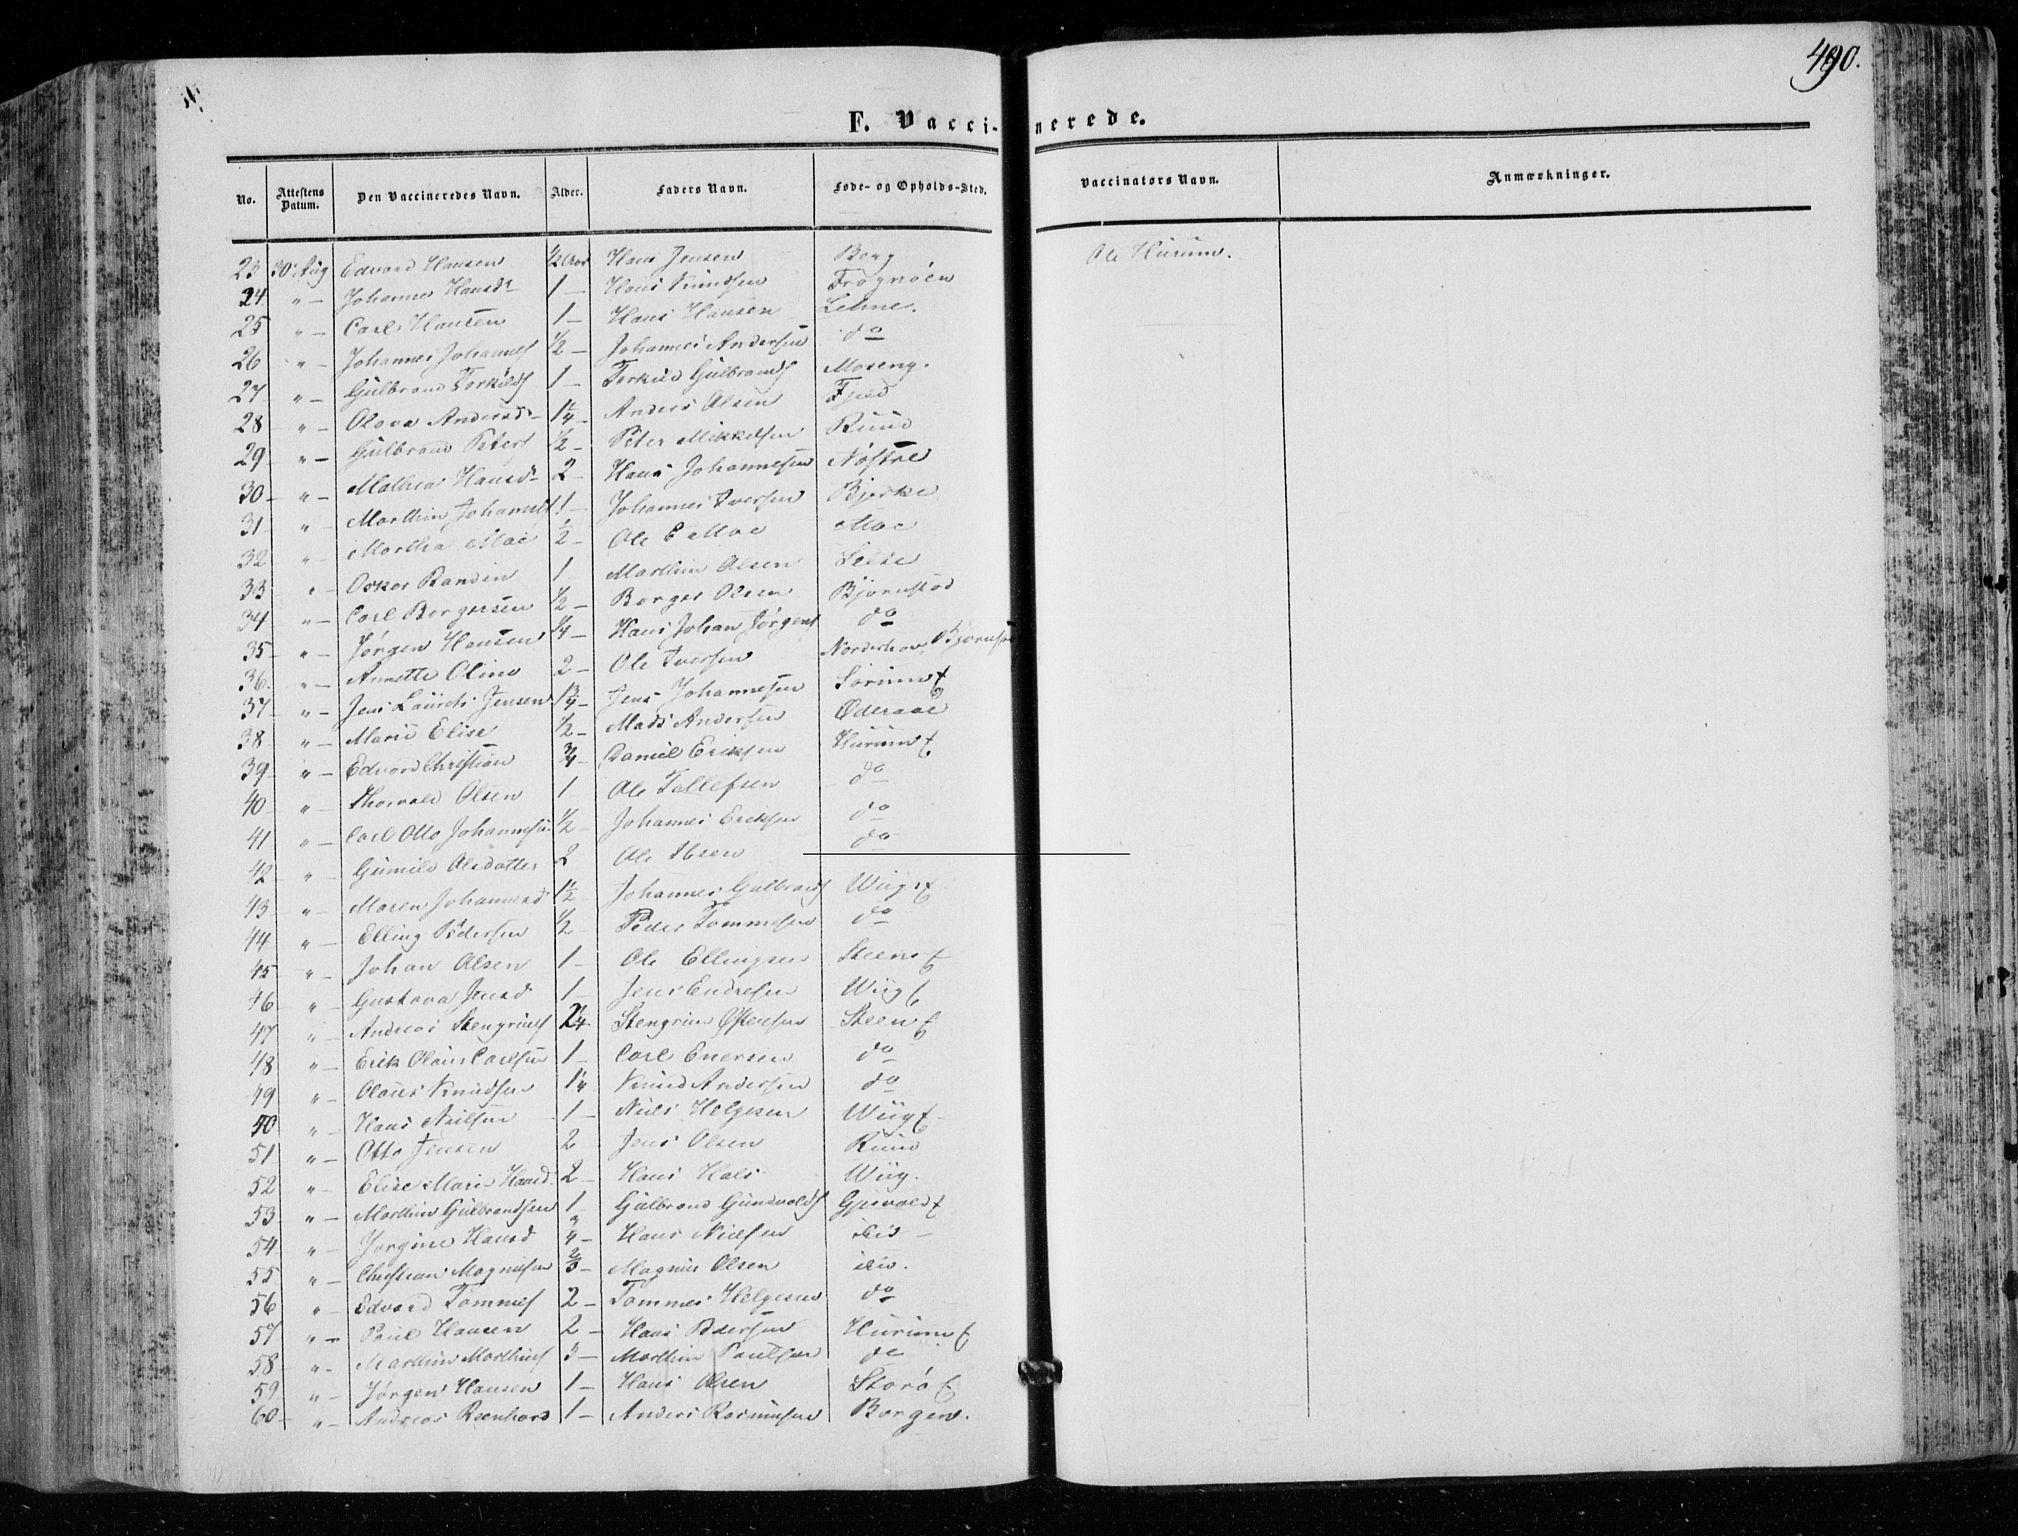 490.
F. Vaccinerede.
No. Attestens Datum. Den Vaccineredes Navn. Alder. Faders Navn. Føde- og Opholds-Sted. Vaccinators Navn. Anmærkninger.
23 30 Aug Edvard Hansen 1/2 Aar Hans Jensen Borg Ole Hurum.
24 " — Johanne Hansd 1 — Hans Knudsen Frognöen
25 " — Carl Hansen 1 — Hans Hansen Lehne.
26 " — Johannes Johannes 1/2 — Johannes Andersen do
27 " — Gulbrand Torkilds 1 — Torkild Gulbrands Moseng.
28 " — Olava Andersd 1 1/4 — Anders Olsen Fjeld
29 " — Gulbrand Peters 1/2 — Peter Mikkelsen Ruud
30 " — Mathea Hansd 2 — Hans Johannesen Nøstre
31 " Marthin Johannes 1 — Johannes Iversen Bjerke
32 " Martha Moe 1/2 — Ole E Moe Moe
33 " Osker 1 Marthin Olsen
34 " — Carl Borgersen 1/2 — Borger Olsen Bjørnstad
35 " — Jørgen Hansen 1/4 — Hans Johan Jørgens do
36 " — Annette Oline 2 — Ole Iversen Norderhov,
37 " — Jens Laurits Jensen 1 3/4 — Jens Johannesen Sörum
38 " — Marie Elise 1/2 — Mads Andersen
39 " — Edvard Christian 3/4 — Daniel Eriksen Hurum
40 " — Thorvald Olsen 1 Ole Tollefsen do
41 " — Carl Otto Johannesen 1/2 — Johannes Eriksen do
42 " Gunild Olsdatter 2 Ole Ibsen do
43 " — Maren Johannesd 1 1/2 Johannes Gulbrands Wiigs
44 " — Elling Pedersen 1/2 Peder Tommesen do
45 " — Johan Olsen 1 — Ole Ellingsen Steens
46 " — Gustava Jensd 1 — Jens Endresen Wiig
47 " — Andreas Stengrims 2 1/4 Stengrim Østensen Steen
48 " — Erik Olaus Carlsen 1 — Carl Enersen do
49 " — Olaus Knudsen 1 1/4 Knud Andersen do
50 " — Hans Nilsen 1 — Niels Helgesen Wiig
51 " — Otto Jensen 2 Jens Olsen Ruud
52 " — Elise Marie Hansd 2 — Hans Hals Wiig.
53 " — Marthin Gulbrandsen 1 Gulbrand Gundvolds Gjesvold
54 " — Jørgine Hansd 3/4 — Hans Nielsen ibid —
55 " — Christian Magnusen 2/3 — Magnus Olsen ibid.
56 " — Edvard Tommes 2 — Tommes Helgesen do
57 " — Paul Hansen 2 — Hans Pedersen Hurum
58 " — Marthin Marthins 3 — Marthin Paulsen do
59 " — Jørgen Hansen 1 — Hans Olsen Storö
60 " — Andreas Reenhard 1 — Anders Rasmusen Borgen.